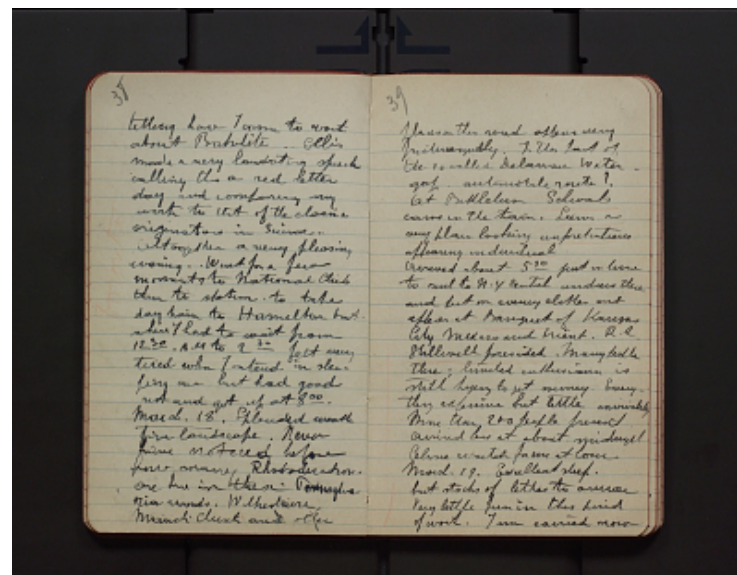 38
telling how I came to work
about Bakelite. Ellis
made a very laudatory speech
calling this a red letter
day and comparing my
work to that of the classic
originators in Science.
altogether a very pleasing
evening. Went for a few
moments to National Club
then to station to take
day train to Hamilton but
where I had to wait from
12 30 A.M to 2 30 felt very
tired when I entered in slee-
ping car but had good
rest and got up at 8 00.
March. 18. Splendid weather
fine landscape. Never
have noticed before
how many Rhododendron
are here in these Pennsylva
nia woods. Wilkesbarre
Mauch Chunk and other
39
places on the road appear very
picturesquely. Is this part of
the so called Delaware Water
gap automobile route?.
At Bethlehem Schwab
came in the train. Seems a
very plain looking unpretentious
appearing individual
Arrived about 5 30 just in time
to rush to N.Y Central undress there
and put on evening clothes and
appear at Banquet of Kansas
City Mexico and Orient. A.E.
Stillwell presided. Many people
there; limited enthusiasm is
still trying to get money. Every-
thing expensive but little
More than 200 people present
arrived home at about midnight
March. 19. Excellent sleep.
but
Very little fun in this kind
of work. I am carried more